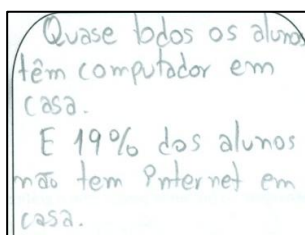 Quase todos os alunos
têm computador em
casa.
E 19% dos alunos
não tem internet em
casa.